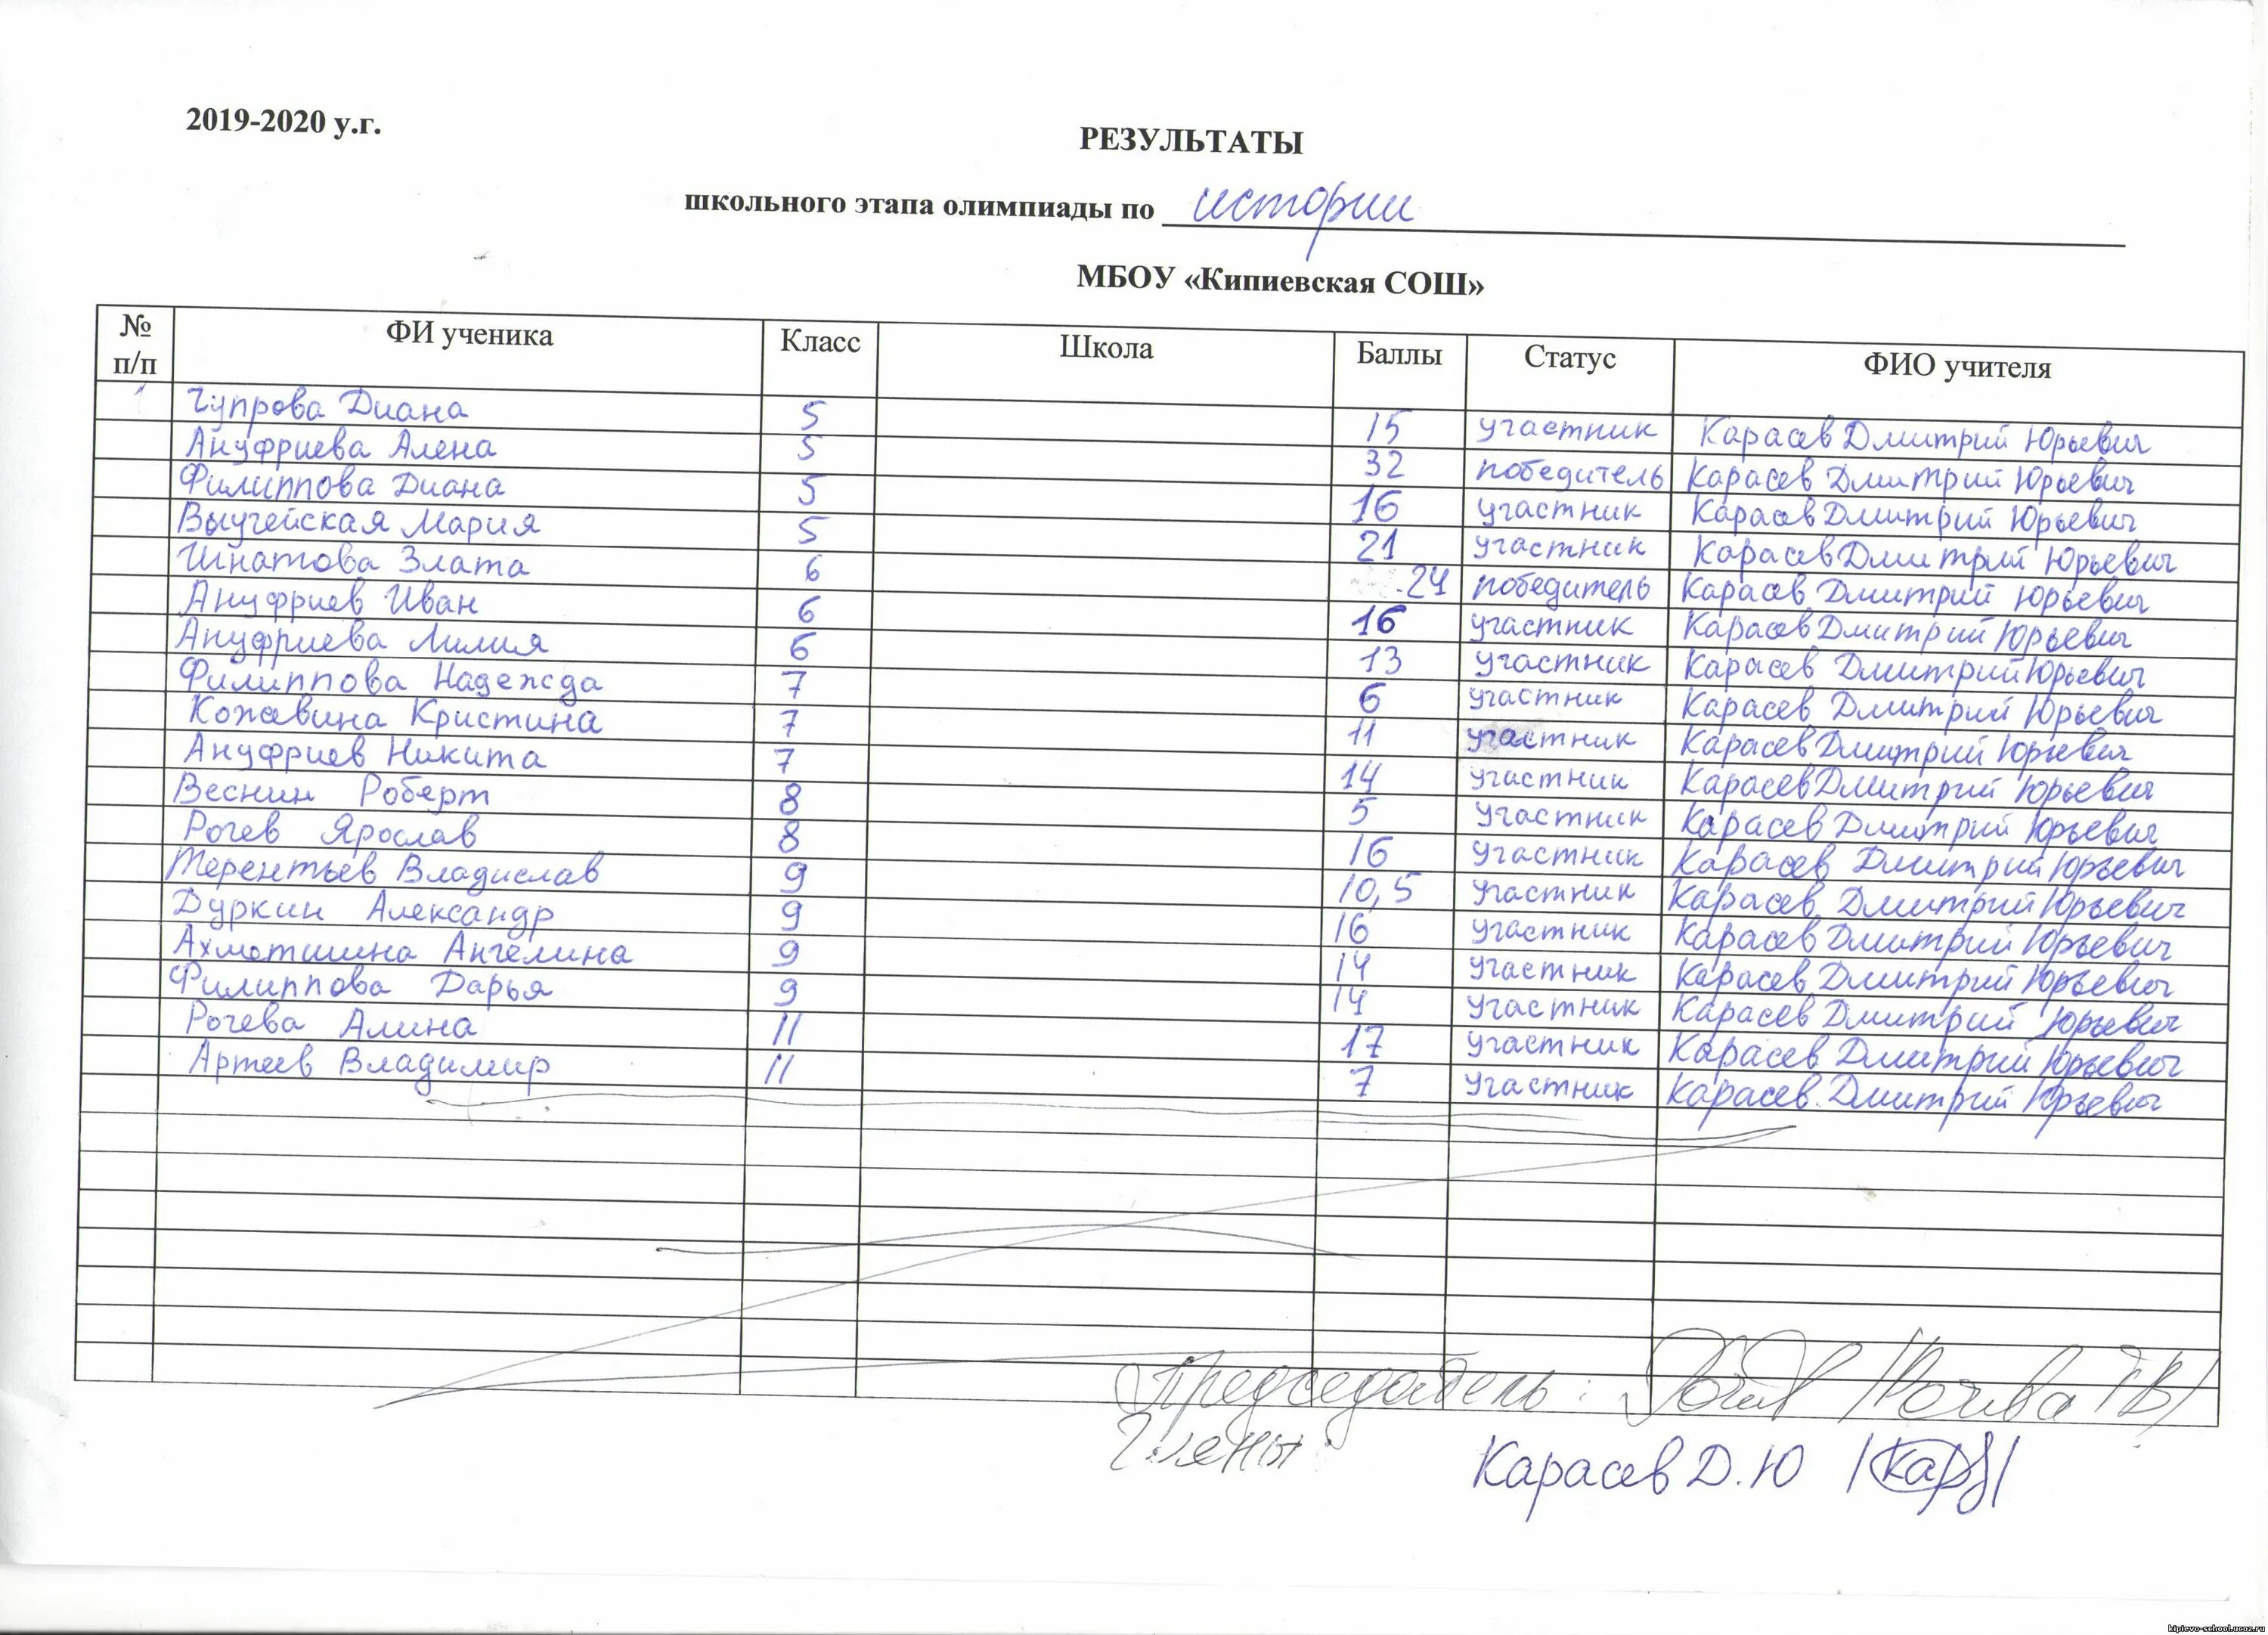 2019-2020 у.г.
РЕЗУЛЬТАТЫ
школьного этапа олимпиады по истории
МБОУ «Кипиевская СОШ»
№ п/п ФИ ученика Класс Школа Баллы Статус ФИО учителя
1 Чупрова Диана 5 15 участник Карасев Дмитрий Юрьевич
Ануфриева Алена 5 32 победитель Карасев Дмитрий Юрьевич
Филиппова Диана 5 16 участник Карасев Дмитрий Юрьевич
Выучейская Мария 5 21 участник Карасев Дмитрий Юрьевич
Игнатова Злата 6 24 победитель Карасев Дмитрий Юрьевич
Ануфриев Иван 6 16 участник Карасев Дмитрий Юрьевич
Ануфриева Лилия 6 13 участник Карасев Дмитрий Юрьевич
Филиппова Надежда 7 6 участник Карасев Дмитрий Юрьевич
Кожевина Кристина 7 11 участник Карасев Дмитрий Юрьевич
Ануфриев Никита 7 14 участник Карасев Дмитрий Юрьевич
Веснин Роберт 8 5 участник Карасев Дмитрий Юрьевич
Рочев Ярослав 8 16 участник Карасев Дмитрий Юрьевич
Терентьев Владислав 9 10,5 участник Карасев Дмитрий Юрьевич
Дуркин Александр 9 16 участник Карасев Дмитрий Юрьевич
Ахметшина Ангелина 9 14 участник Карасев Дмитрий Юрьевич
Филиппова Дарья 9 14 участник Карасев Дмитрий Юрьевич
Рочева Алина 11 17 участник Карасев Дмитрий Юрьевич
Артеев Владимир 11 7 участник Карасев Дмитрий Юрьевич
Председатель: /Рочева
Члены:
Карасев Д.Ю
kipievo-school.ucoz.ru